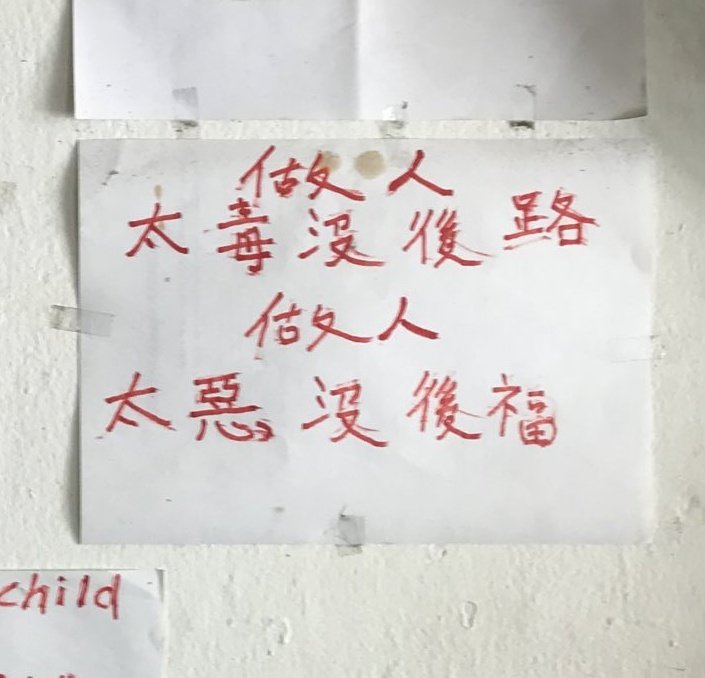 做人
太毒没後路
做人
太惡没後福
child